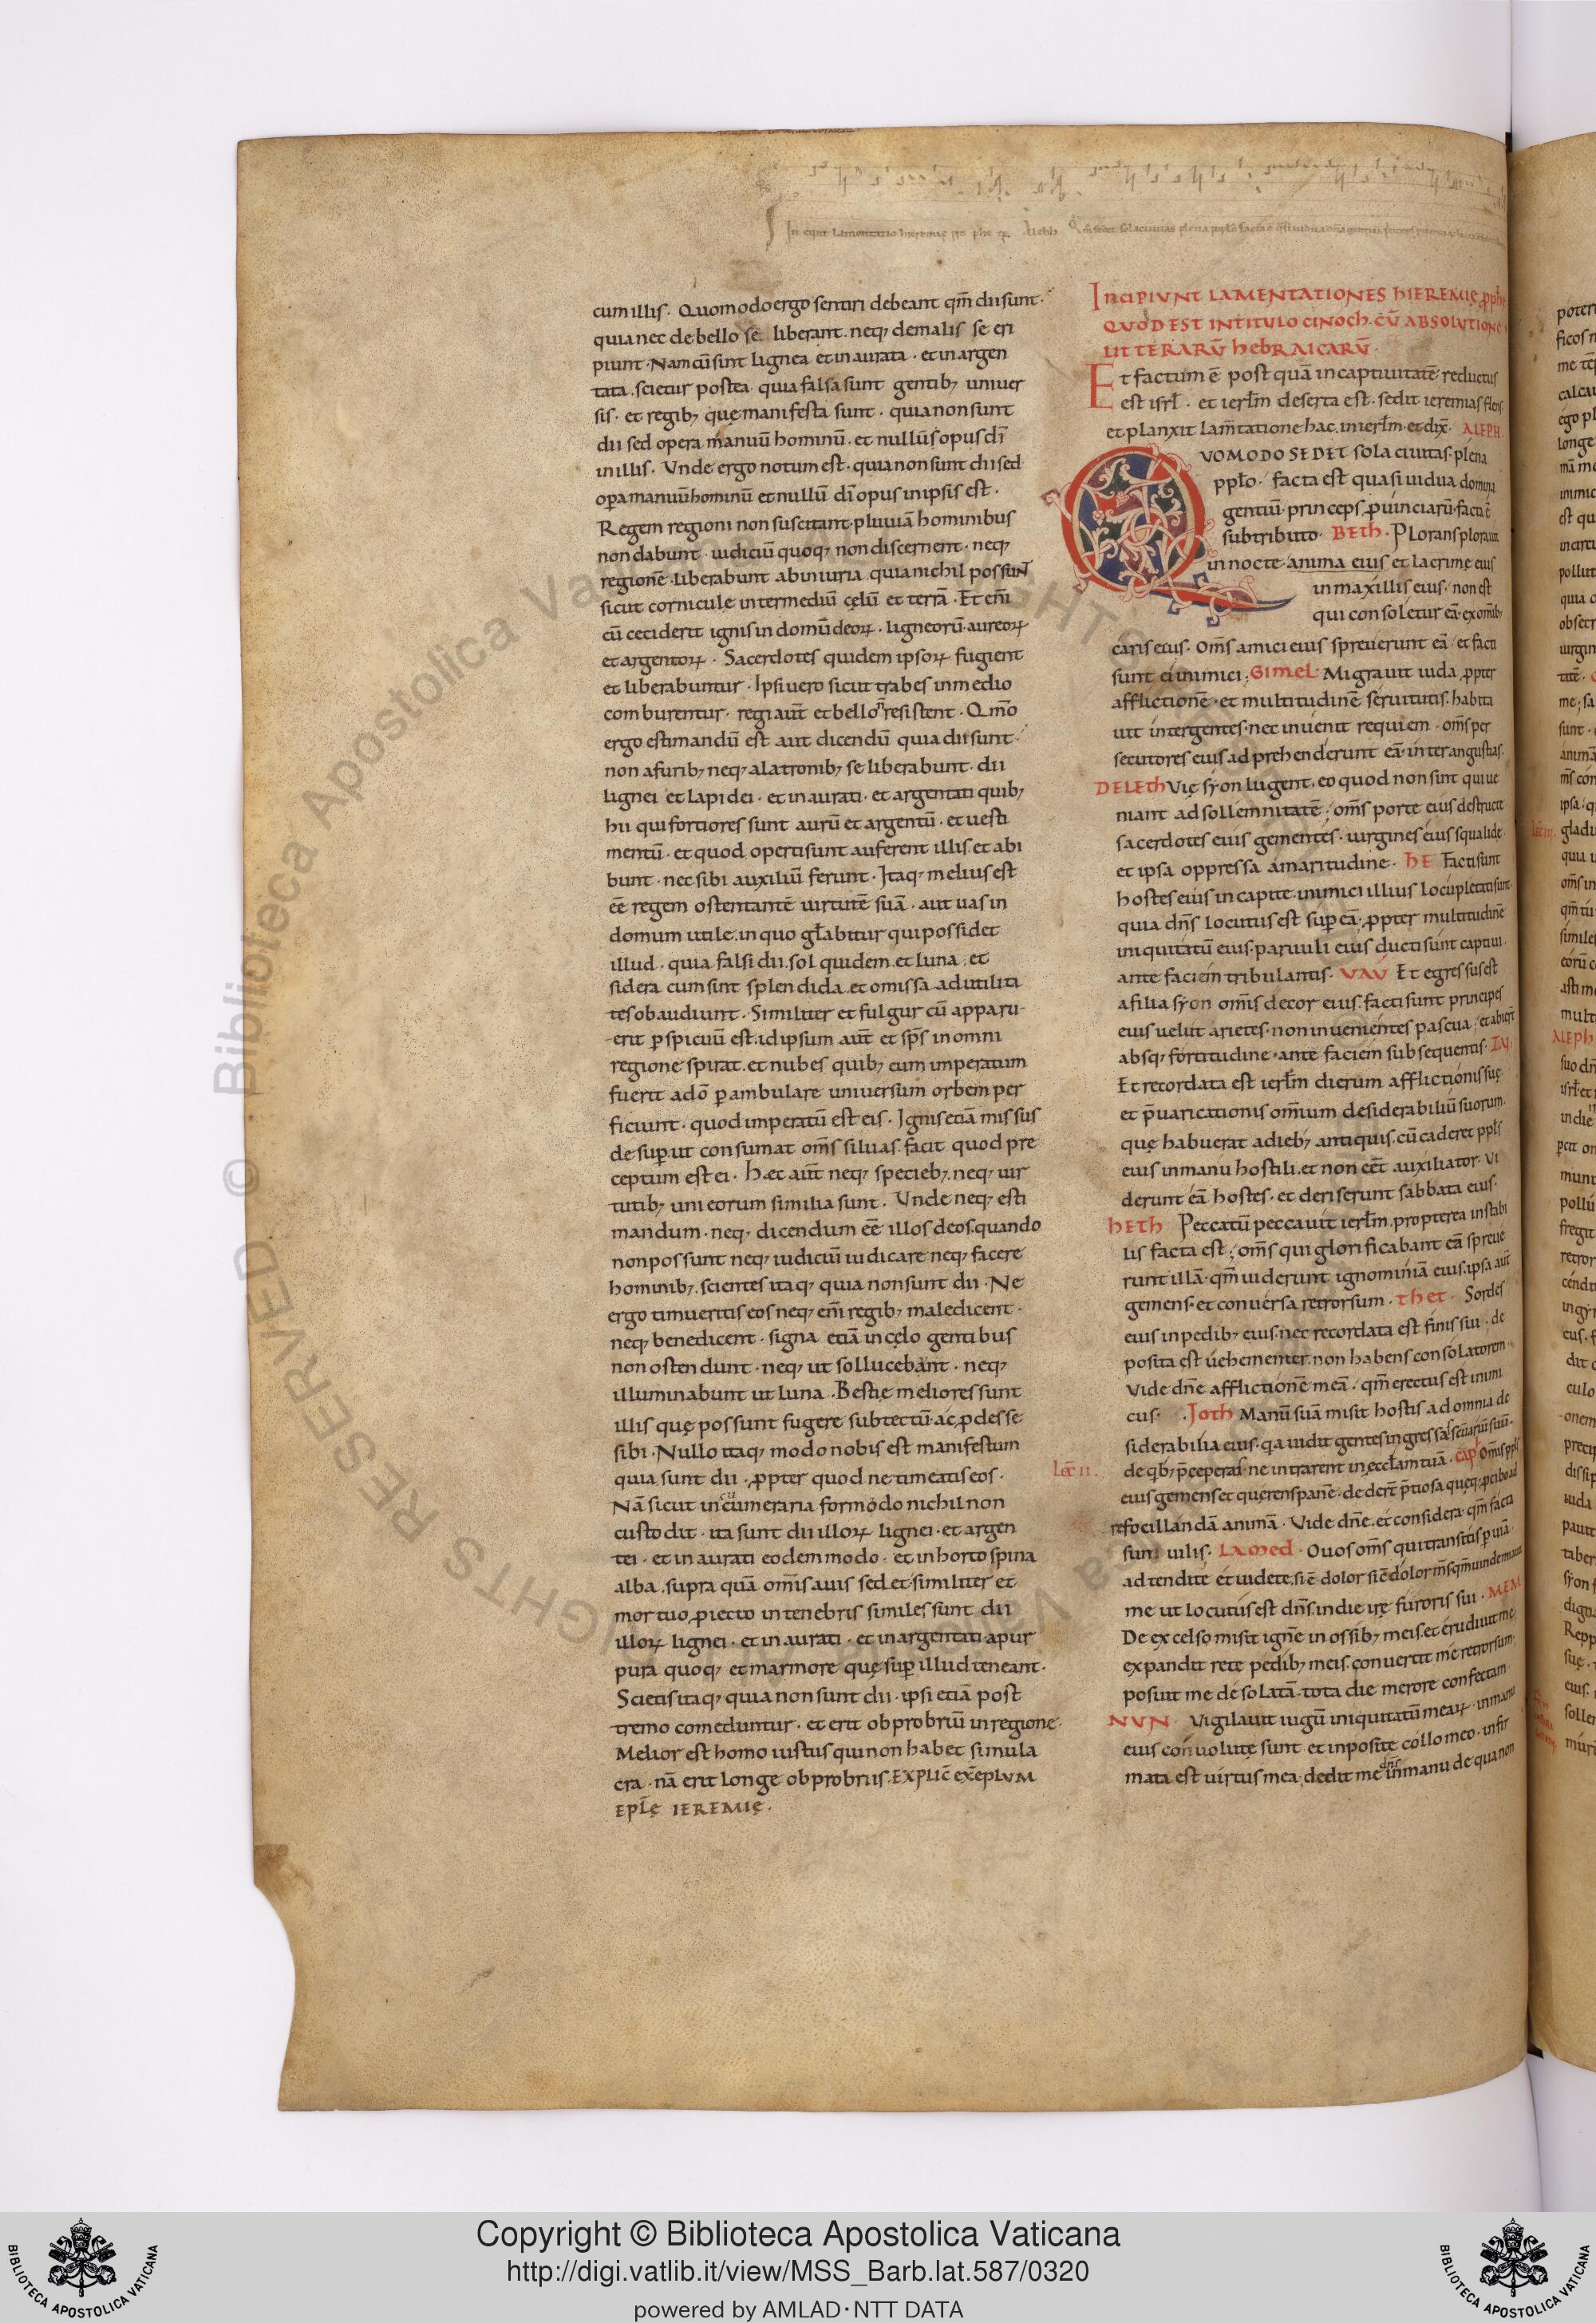 In cipit Lamentatio hieremię pro phe tę. Aleph Qm̄ sedet sola ciuitas plena pplo facta ē q̄si uidua
cum illis. Quomodo ergo sentiri debeant qm̄ dii sunt.
quia nec de bello se liberant. neq; de malis se eri
piunt. Nam cū sint lignea et inaurata. et inargen
tata. scietur postea quia falsa sunt gentib; uniuer
sis. et regib; quę manifesta sunt. quia non sunt
dii sed opera manuū hominū. et nullūs opus dī
in illis. Unde ergo notum est. quia non sunt dii sed
opa manuū hominū et nullū dī opus in ipsis est.
Regem regioni non suscitant. pluuiā hominibus
non dabunt. iudiciū quoq; non discernent. neq;
regionē liberabunt ab iniuria. quia nichil possunt
sicut cornicule inter mediū cęlū et terrā. Et enī
cū ceciderit ignis in domū deoꝝ. ligneorū. aureoꝝ
et argentoꝝ. Sacerdotes quidem ipsoꝝ fugient
et liberabuntur. Ipsi uero sicut trabes in medio
comburentur. regi aut̄ et bello n̄ resistent. Qmō
ergo estimandū est aut dicendū quia dii sunt.
non a furib; neq; a latronib; se liberabunt. dii
lignei et lapidei. et inaurati. et argentati quib;
hii qui fortiores sunt aurū et argentū. et uesti
mentū. et quod operti sunt auferent illis. et abi
bunt. nec sibi auxiliū ferunt. Itaq; melius est
ēē regem ostentantē uirtutē suā. aut uas in
domum utile. in quo głabitur qui possidet
illud. quia falsi dii. sol quidem. et luna. et
sidera cum sint splendida. et omissa ad utiliti
tes obaudiunt. Similiter et fulgur cū apparu
erit pspicuū est. id ipsum aut̄ et sps̄ in omni
regione spirat. et nubes quib; cum imperatum
fuerit a dō pambulare uniuersum orbem per
ficiunt. quod imperatū est eis. Ignis etiā missus
de sup. ut consumat om̄s siluas. facit quod pre
ceptum est ei. Hæc aut̄ neq; specieb;. neq; uir
tutib; uni eorum similia sunt. Unde neq; esti
mandum. neq; dicendum ēē illos deos. quando
non possunt neq; iudiciū iudicare neq; facere
hominib;. scientes itaq; quia non sunt dii. Ne
ergo timueritis eos neq; enī regib; maledicent.
neq; benedicent. signa etiā in cęlo gentibus
non ostendunt. neq; ut sol lucebant. neq;
illuminabunt ut luna. Bestię meliores sunt
illis quę possunt fugere sub tectū. ac pdesse
sibi. Nullo itaq; modo nobis est manifestum
quia sunt dii. ppter quod ne timeatis eos.
Nā sicut in cucumeraria formodo nichil non
custodit. ita sunt dii illoꝝ lignei. et argen
tei. et inaurati eodem modo. et in horto spina
alba. supra quā om̄is auis sedet. similiter et
mortuo piecto in tenebris similes sunt dii
illoꝝ lignei. et inaurati. et inargentati. a pur
pura quoq; et marmore quę sup illud teneant.
Scietis itaq; quia non sunt dii. ipsi etiā post
tremo comeduntur. et erit obprobriū in regione.
Melior est homo iustus qui non habet simula
cra. nā erit longe ob probriis. EXPLIC̄ EXĒPLVM
EPLĘ IEREMIĘ.
INCIPIVNT LAMENTATIONES HIEREMIĘ PPHE
QVOD EST IN TITVLO CINOCH. CŪ ABSOLVTIONE
LITTERARŪ HEBRAICARŪ.
Et factum ē post quā in captiuitatē reductus
est isrł. et ierłm deserta est. sedit ieremias flens
et planxit lam̄tatione hac. in ierłm. et dix̄. ALEPH
QVOMODO SEDET sola ciuitas. plena
ppło. facta est quasi uidua domina
gentiū. princeps puinciarū. facta ē
sub tributo. BETH. Plorans plorauit
in nocte. anima eius et lacrimę eius
in maxillis eius. non est
qui consoletur eā. ex om̄ib;
caris eius. Om̄s amici eius spreuerunt eā. et facti
sunt ei inimici; GIMEL Migrauit iuda ppter
afflictionē. et multitudinē seruitutis. habita
uit inter gentes. nec inuenit requiem. om̄s per
secutores eius adprehenderunt eā. inter angustias.
DELETH Vię syon lugent. eo quod non sint qui ue
niant ad sollemnitatē. om̄s porte eius destructe
sacerdotes eius gementes. uirgines eius squalide.
et ipsa oppressa amaritudine. HE Facti sunt
hostes eius in capite. inimici illius locupletati sunt.
quia dn̄s locutus est sup eā. ppter multitudinē
iniquitatū eius. paruuli eius ducti sunt captiui.
ante faciem tribulantis. VAV Et egressus est
a filia syon om̄is decor eius. facti sunt principes
eius uelut arietes. non inuenientes pascua. et abiert̄
absq; fortitudine. ante faciem subsequentis. ZAI
Et recordata est ierłm dierum afflictionis suę
et p̄uaricationis om̄ium desiderabiliū suorum.
quę habuerat a dieb; antiquis. cū caderet ppłs
eius in manu hostili. et non eēt auxiliator. Vi
derunt eā hostes. et deriserunt sabbata eius.
HETH Peccatū peccauit ierłm. propterea instabi
lis facta est. om̄s qui glorificabant eā spreue
runt illā. qm̄ uiderunt ignominiā eius. ipsa aut̄
gemens. et conuersa retrorsum. THET. Sordes
eius in pedib; eius. nec recordata est finis sui. de
posita est uehementer. non habens consolatorem.
Vide dn̄e afflictionē meā. qm̄ erectus est inimi
cus. IOTH Manū suā misit hostis ad omnia de
siderabilia eius. qa uidit gentes ingressas scūariū suū.
Lec̄ II. de qb; p̄ceperas ne intrarent in ęccłam tuā. CAPH Om̄is ppłs
eius gemens et querens panē. dedert̄ p̄tiosa quęq; p cibo ad
refocillandā animā. Vide dn̄e. et considera. qm̄ facta
sum uilis. LAMED. O uos om̄s qui transitis p uiā.
adtendite et uidete. si ē dolor sič dolor m̄s. qm̄ uindemiauit
me ut locutus est dn̄s. in die irę furoris sui. MEM
De excelso misit ignē in ossib; meis. et erudiuit me
expandit rete pedib; meis. conuertit me retrorsum.
posuit me desolatā. tota die merore confectam.
NVN Vigilauit iugū iniquitatū meaꝝ. in manu
eius conuolutę sunt et inposite collo meo. infir
mata est uirtus mea. dedit me dn̄s in manu de qua non
Copyright © Biblioteca Apostolica Vaticana
http://digi.vatlib.it/view/MSS_Barb.lat.587/0320
powered by AMLAD·NTT DATA
BIBLIOTECA APOSTOLICA VATICANA
BIBLIOTECA APOSTOLICA VATICANA